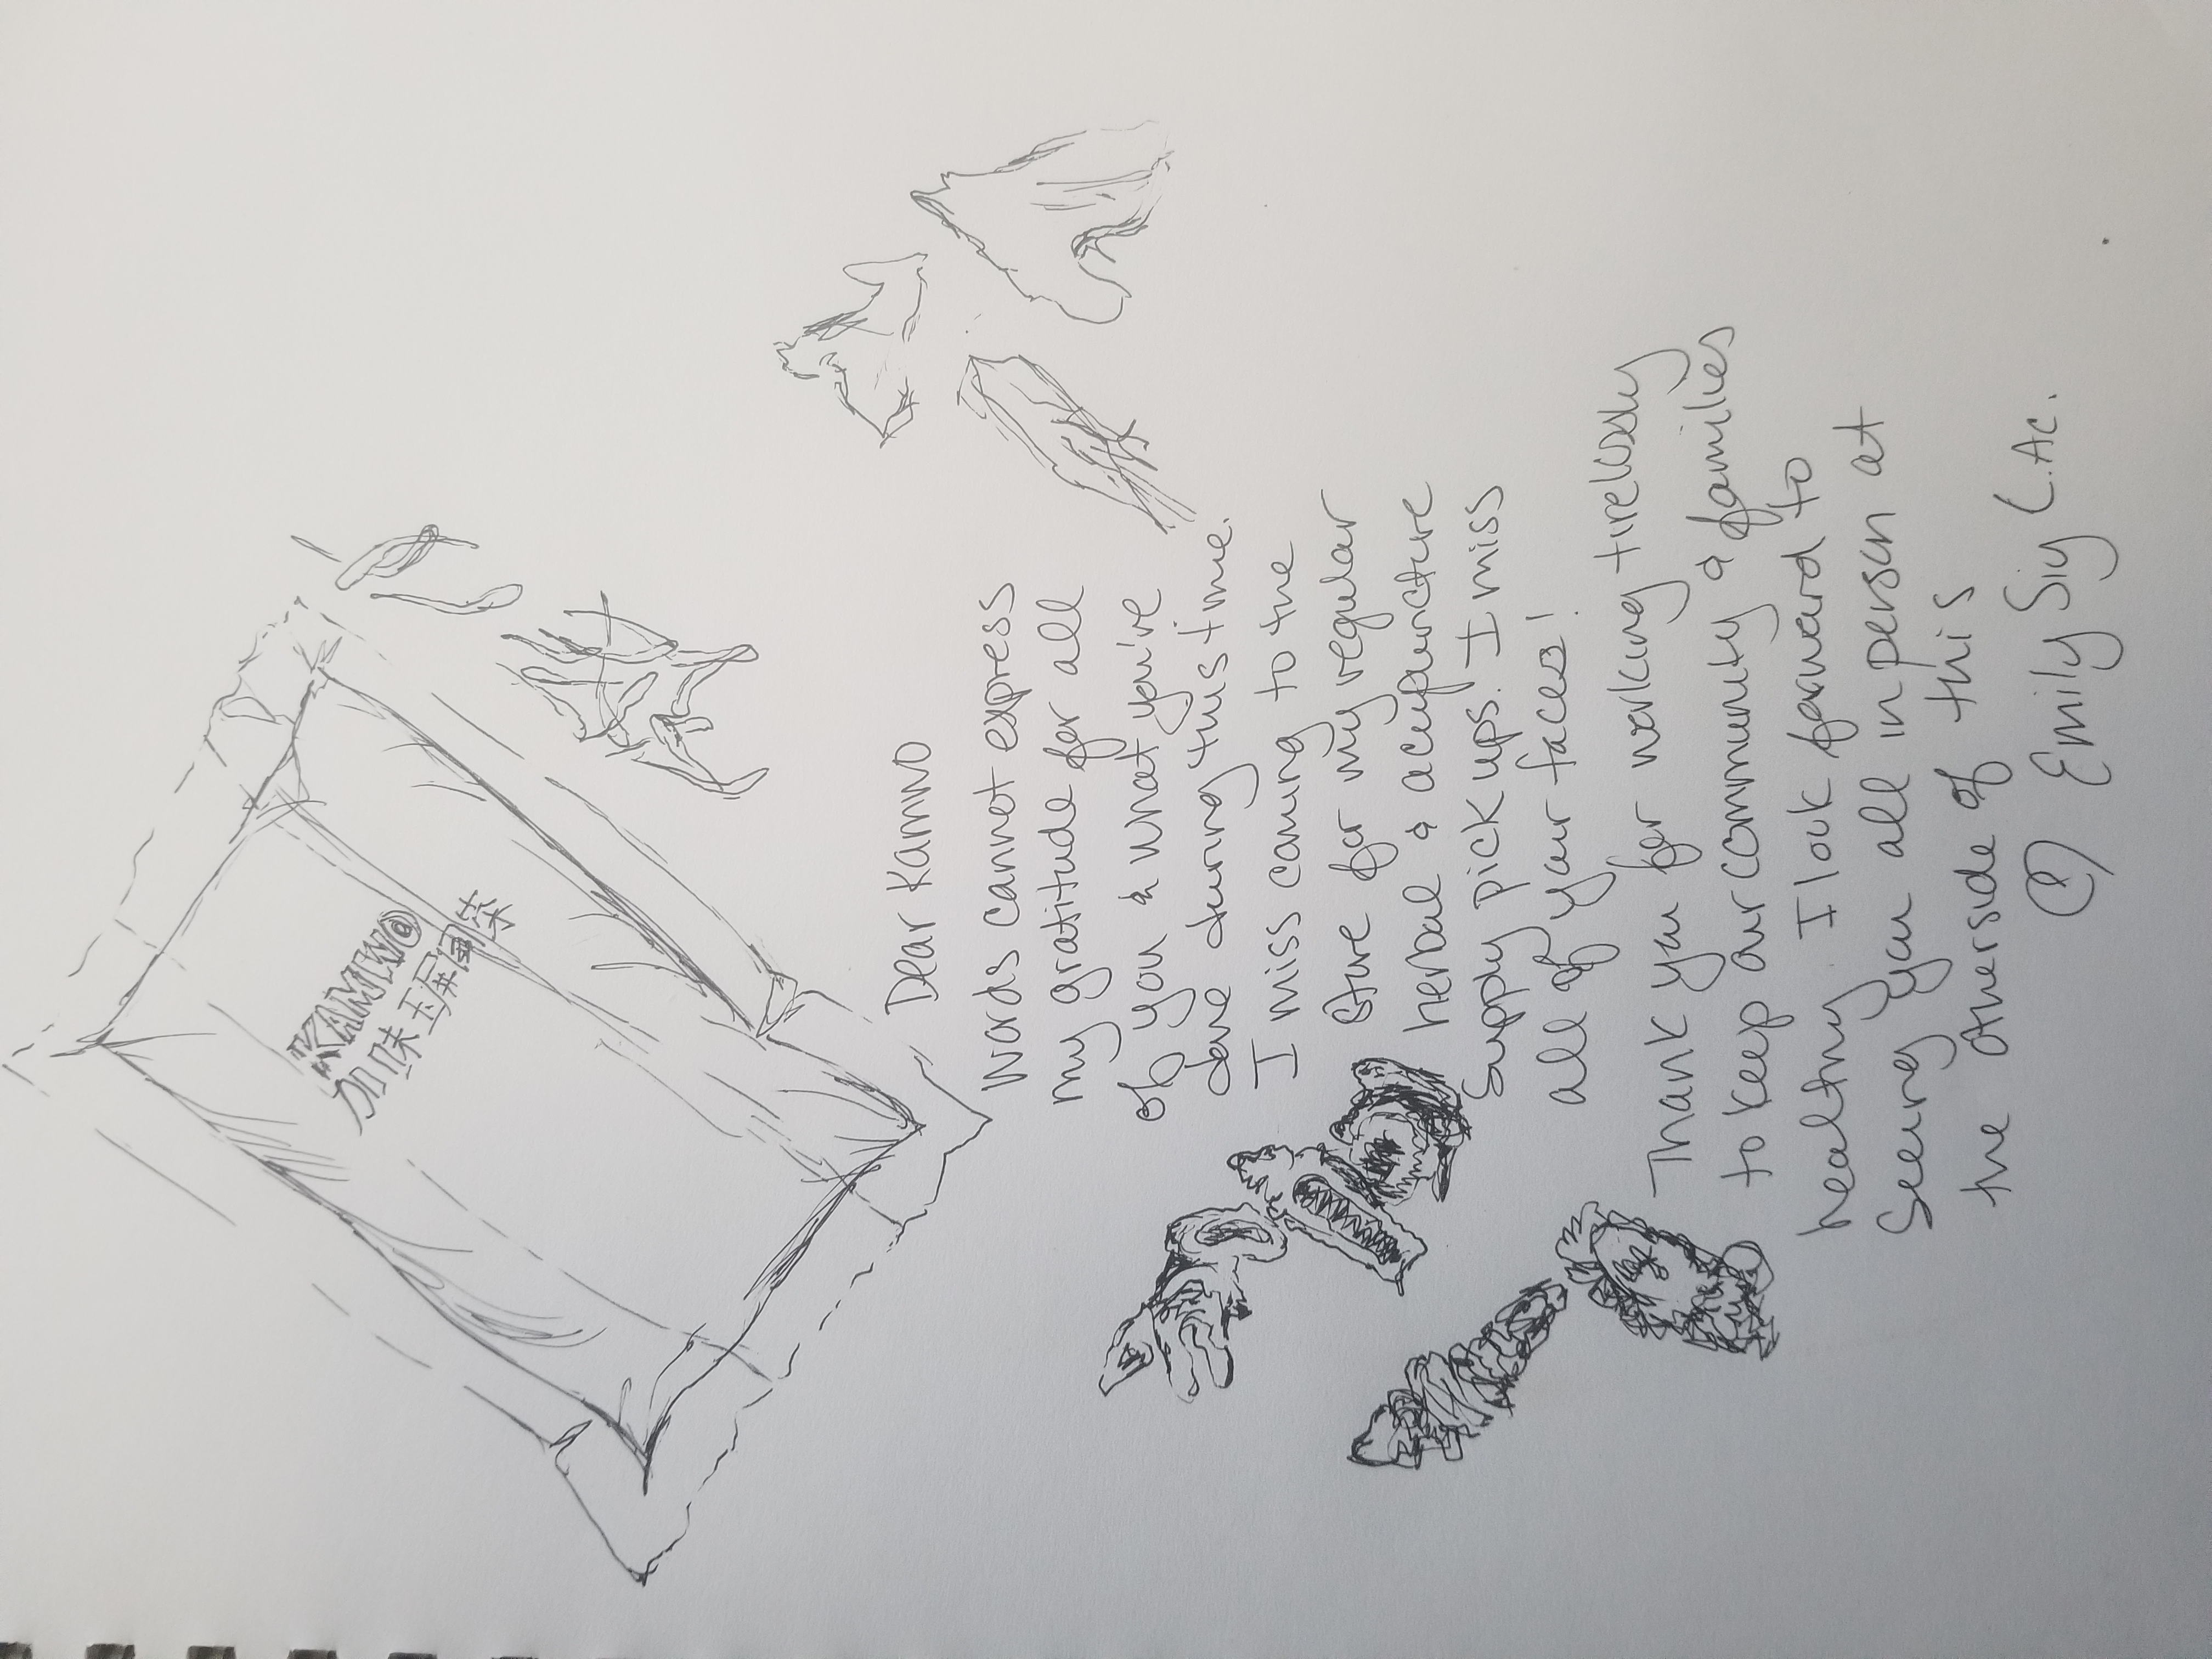 KAMWO
加味玉屏風茶
Dear Kamwo
Words cannot express
my gratitude for all
of you & what you've
done during this time.
I miss coming to the
store for my regular
herbal & acupuncture
supply pick ups. I miss
all of your faces!
Thank you for working tirelessly
to keep our community & families
healthy. I look forward to
Seeing you all in person at
the otherside of this
Emily Siy L.Ac.